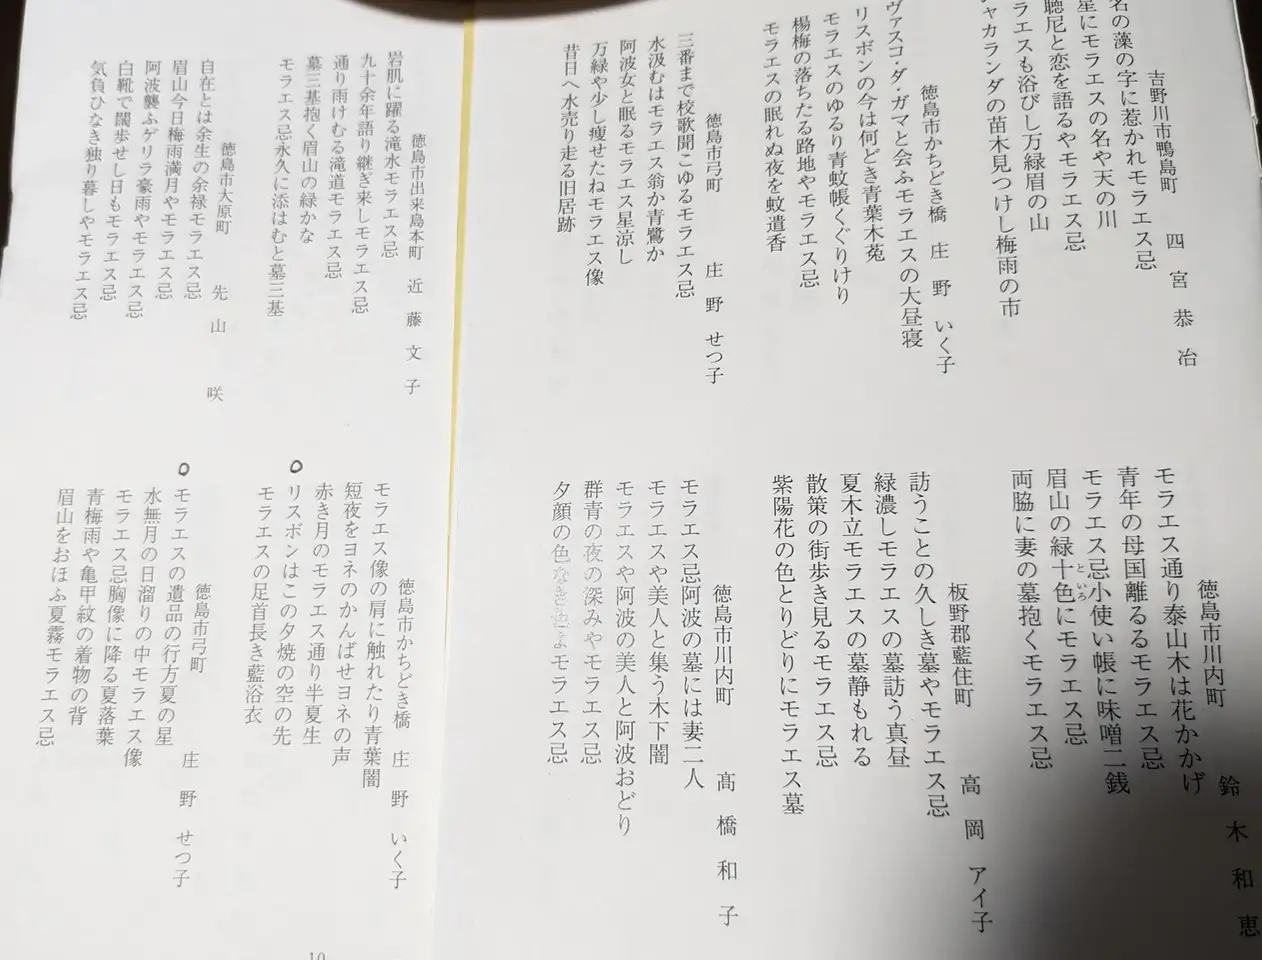 吉野川市鴨島町 四宮恭冶
名の藻の字に惹かれモラエス忌
星にモラエスの名や天の川
聴尼と恋を語るやモラエス忌
ラエスも浴びし万緑眉の山
ャカランダの苗木見つけし梅雨の市
徳島市かちどき橋 庄野いく子
ヴァスコ・ダ・ガマと会ふモラエスの大昼寝
リスボンの今は何どき青葉木菟
モラエスのゆるり青蚊帳くぐりけり
楊梅の落ちたる路地やモラエス忌
モラエスの眠れぬ夜を蚊遣香
徳島市弓町 庄野せつ子
三番まで校歌聞こゆるモラエス忌
水汲むはモラエス翁か青鷺か
阿波女と眠るモラエス星涼し
万緑や少し痩せたねモラエス像
昔日へ水売り走る旧居跡
徳島市川内町 鈴木和恵
モラエス通り泰山木は花かかげ
青年の母国離るるモラエス忌
モラエス忌小使い帳に味噌二銭
眉山の緑十色にモラエス忌
といろ
両脇に妻の墓抱くモラエス忌
板野郡藍住町 高岡アイ子
訪うことの久しき墓やモラエス忌
緑濃しモラエスの墓訪う真昼
夏木立モラエスの墓静もれる
散策の街歩き見るモラエス忌
紫陽花の色とりどりにモラエス墓
徳島市川内町 髙橋和子
モラエス忌阿波の墓には妻二人
モラエスや美人と集う木下闇
モラエスや阿波の美人と阿波おどり
群青の夜の深みやモラエス忌
夕顔の色なき色よモラエス忌
徳島市出来島本町 近藤文子
岩肌に躍る滝水モラエス忌
九十余年語り継ぎ来しモラエス忌
通り雨けむる滝道モラエス忌
墓三基抱く眉山の緑かな
モラエス忌永久に添はむと墓三基
徳島市大原町 先山咲
自在とは余生の余禄モラエス忌
眉山今日梅雨満月やモラエス忌
阿波襲ふゲリラ豪雨やモラエス忌
白靴で闊歩せし日もモラエス忌
気負ひなき独り暮しやモラエス忌
徳島市かちどき橋 庄野いく子
モラエス像の肩に触れたり青葉闇
短夜をヨネのかんばせヨネの声
赤き月のモラエス通り半夏生
リスボンはこの夕焼の空の先
モラエスの足首長き藍浴衣
徳島市弓町 庄野せつ子
モラエスの遺品の行方夏の星
水無月の日溜りの中モラエス像
モラエス忌胸像に降る夏落葉
青梅雨や亀甲紋の着物の背
眉山をおほふ夏霧モラエス忌
10